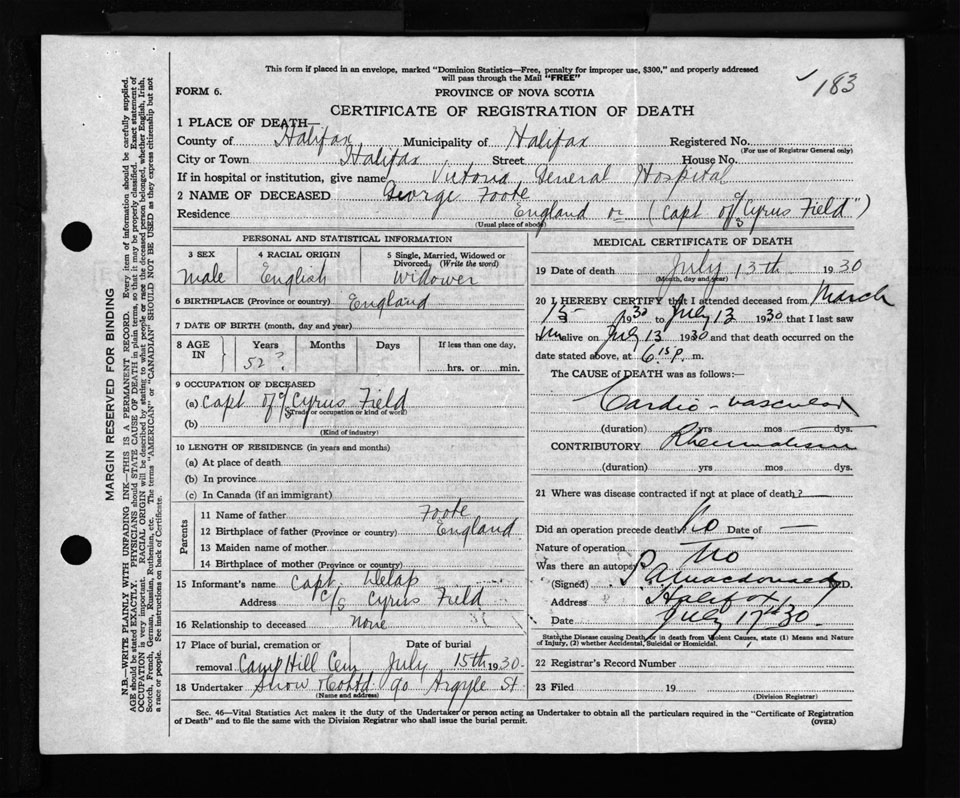 This form if placed in an envelope, marked "Dominion Statistics—Free, penalty for improper use, $300," and properly addressed
will pass through the Mail "FREE"
✓ 183
FORM 6.
PROVINCE OF NOVA SCOTIA
CERTIFICATE OF REGISTRATION OF DEATH
1 PLACE OF DEATH—
County of Halifax Municipality of Halifax Registered No.
(For use of Registrar General only)
City or Town Halifax Street House No.
If in hospital or institution, give name Victoria General Hospital
2 NAME OF DECEASED George Foote
Residence England or (Capt of C/S Cyrus Field")
(Usual place of abode)
PERSONAL AND STATISTICAL INFORMATION
3 SEX 4 RACIAL ORIGIN 5 Single, Married, Widowed or
Divorced. (Write the word)
Male English Widower
6 BIRTHPLACE (Province or country) England
7 DATE OF BIRTH (month, day and year)
8 AGE IN Years Months Days If less than one day,
52? hrs. or min.
9 OCCUPATION OF DECEASED
(a) Capt of C/S Cyrus Field
(Trade or occupation or kind of work)
(b)
(Kind of industry)
10 LENGTH OF RESIDENCE (in years and months)
(a) At place of death
(b) In province
(c) In Canada (if an immigrant)
Parents
11 Name of father Foote
12 Birthplace of father (Province or country) England
13 Maiden name of mother
14 Birthplace of mother (Province or country)
15 Informant's name Capt. Delap
Address C/S Cyrus Field
16 Relationship to deceased None
17 Place of burial, cremation or Date of burial
removal Camp Hill Cem July 15th 1930
18 Undertaker Snow & Co Ltd 90 Argyle St
(Name and address)
MEDICAL CERTIFICATE OF DEATH
19 Date of death July 13th 1930
(Month, day and year)
20 I HEREBY CERTIFY that I attended deceased from March
15 1930 to July 13 1930 that I last saw
him alive on July 13 1930 and that death occurred on the
date stated above, at 6 15 P. m.
The CAUSE of DEATH was as follows:—
Cardio-vascular
(duration) yrs mos dys.
CONTRIBUTORY Rheumatism
(duration) yrs mos dys.
21 Where was disease contracted if not at place of death?
Did an operation precede death No Date of —
Nature of operation
Was there an autopsy No
(Signed) Macdonald M.D.
Address Halifax
Date July 17th 30
State the Disease causing Death, or in death from Violent Causes, state (1) Means and Nature
of Injury, (2) whether Accidental, Suicidal or Homicidal.
22 Registrar's Record Number
23 Filed 19
(Division Registrar)
Sec. 46—Vital Statistics Act makes it the duty of the Undertaker or person acting as Undertaker to obtain all the particulars required in the "Certificate of Registration
of Death" and to file the same with the Division Registrar who shall issue the burial permit.
(OVER)
MARGIN RESERVED FOR BINDING
N.B.—WRITE PLAINLY WITH UNFADING INK—THIS IS A PERMANENT RECORD. Every item of information should be carefully supplied.
AGE should be stated EXACTLY. PHYSICIANS should STATE CAUSE OF DEATH in plain terms, so that it may be properly classified. Exact statement of
OCCUPATION is very important. RACIAL ORIGIN will be described by stating to what people or race the deceased person belonged, whether English, Irish,
Scotch, French, German, Russian, Ruthenian, etc. The terms "AMERICAN" or "CANADIAN" SHOULD NOT BE USED as they express citizenship but not
a race or people. See instructions on back of Certificate.